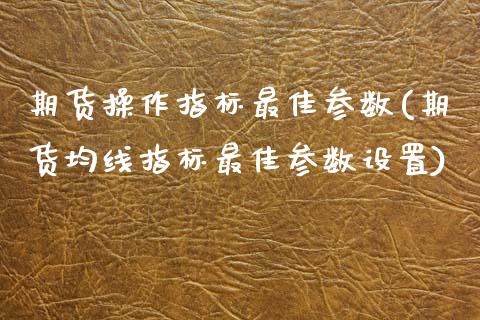 期货操作指标最佳参数(期
货均线指标最佳参数设置)